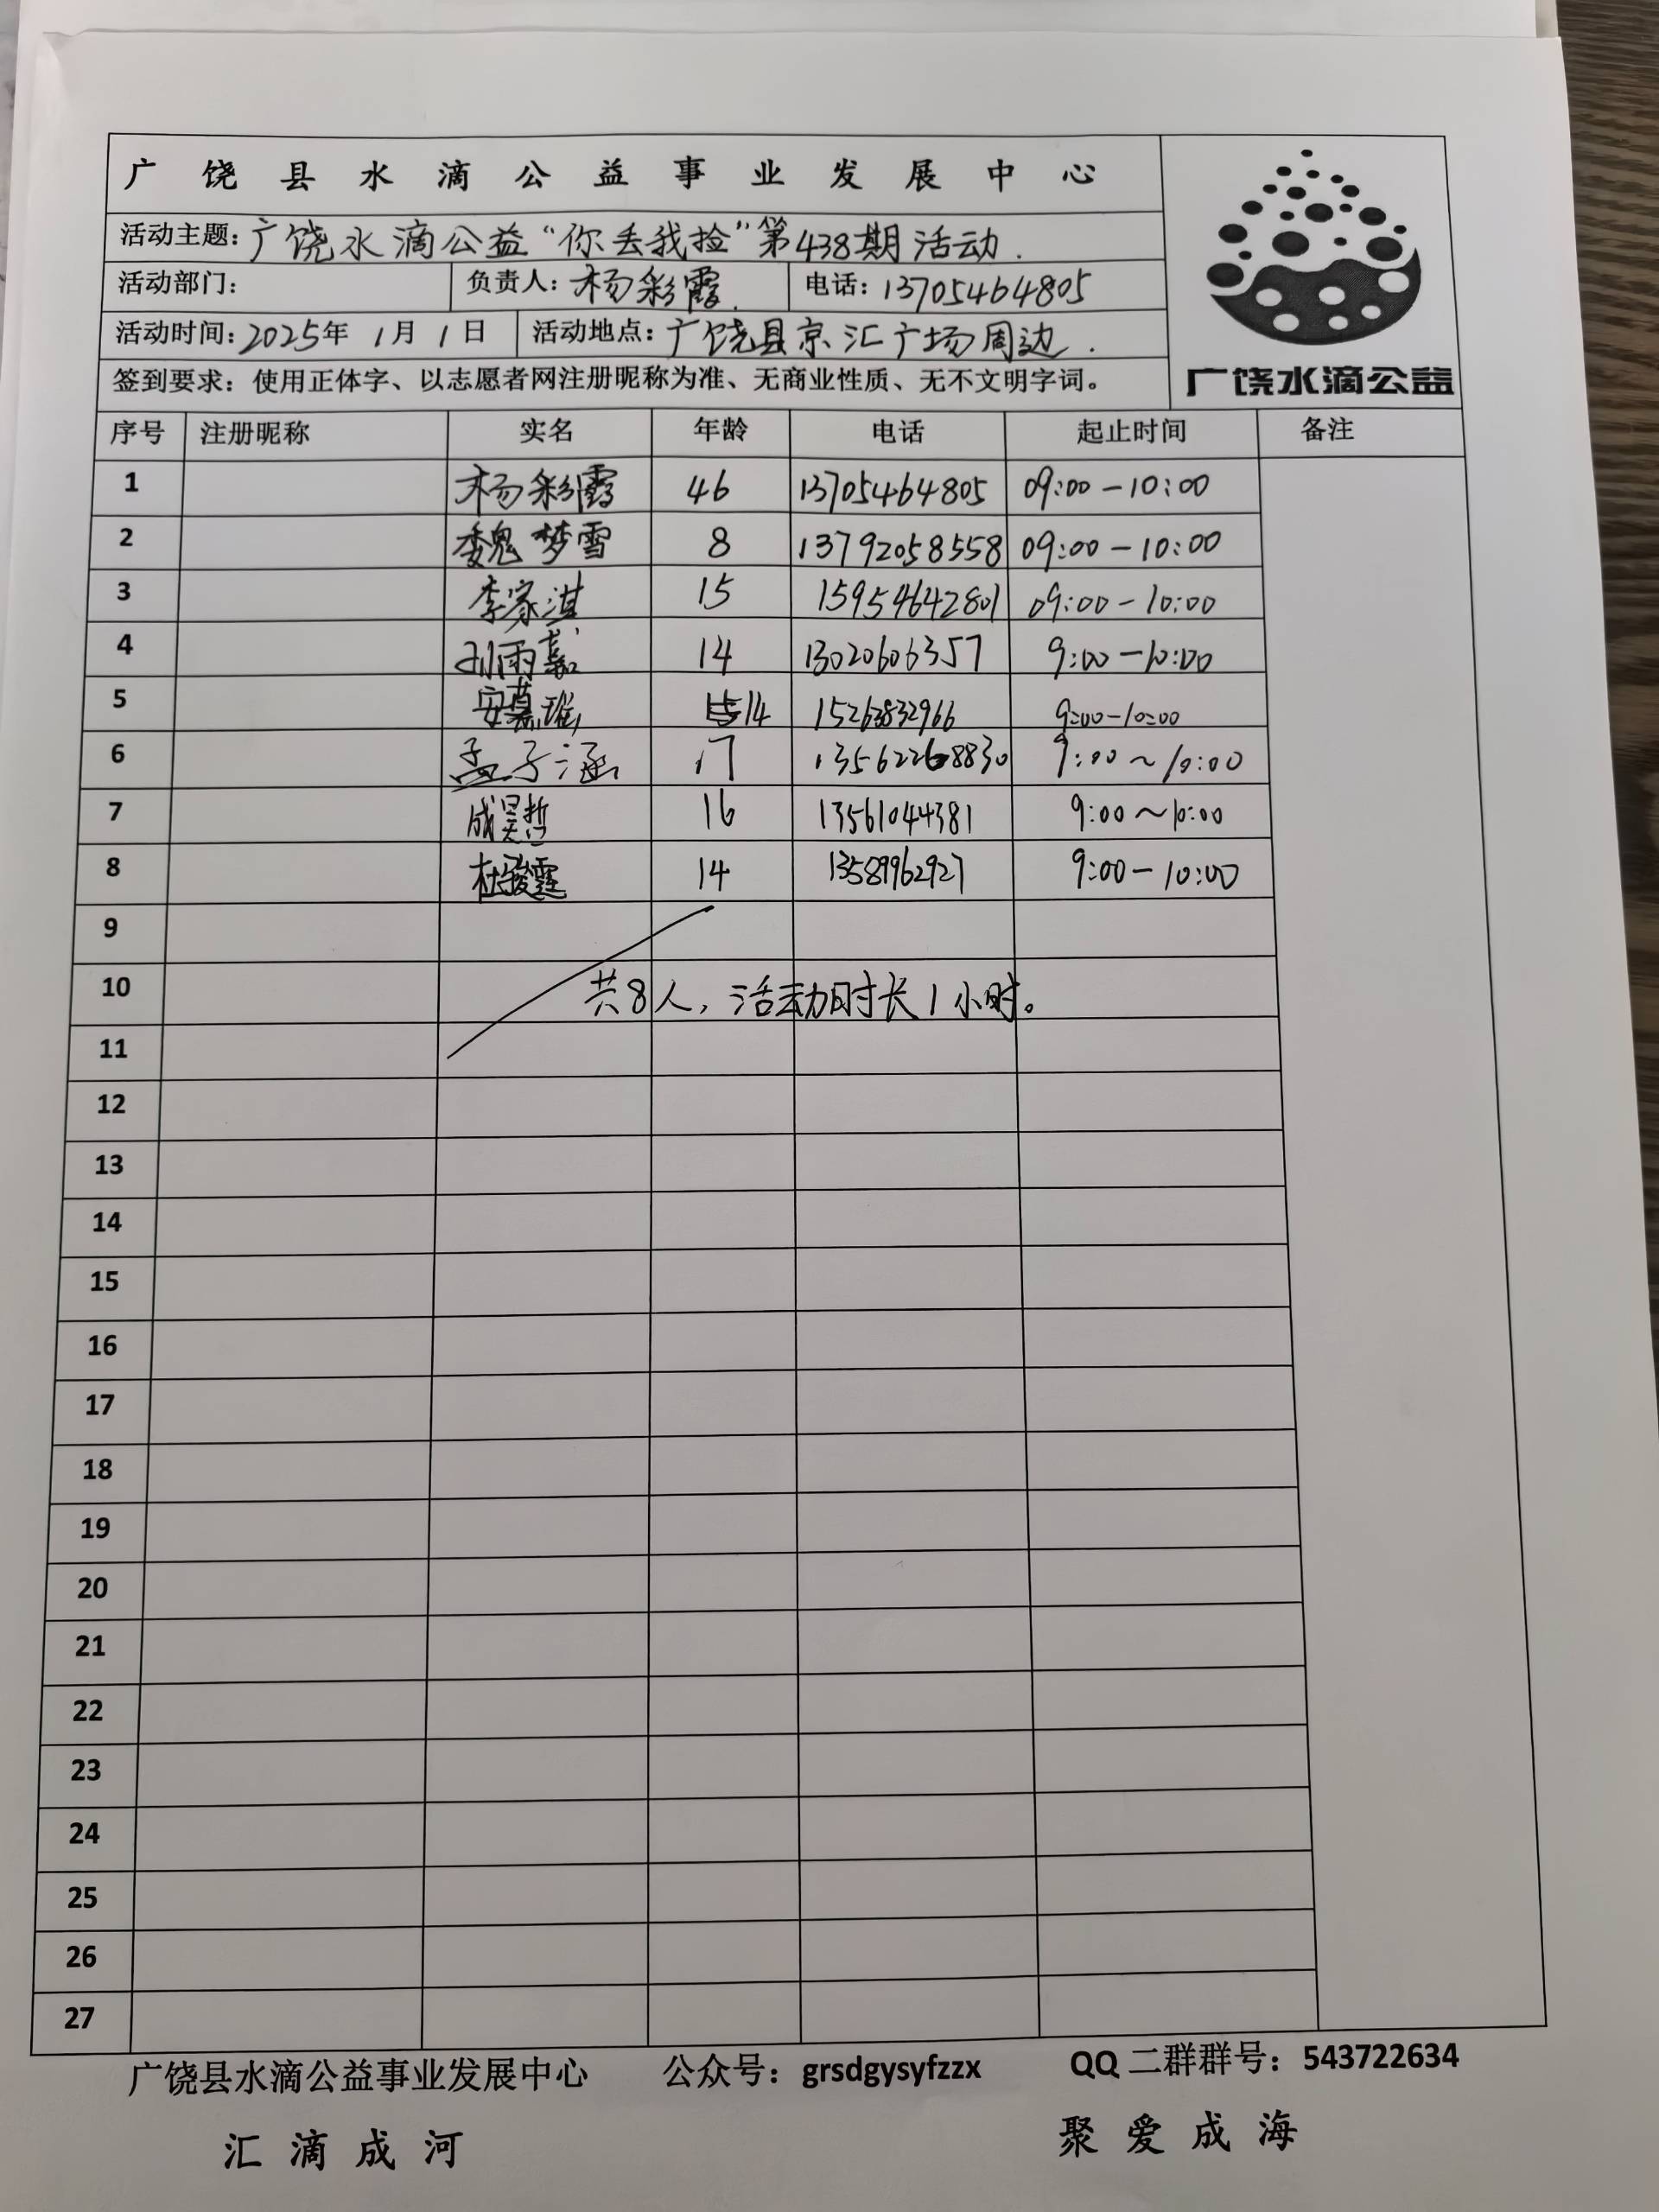 广饶县水滴公益事业发展中心
活动主题：广饶水滴公益“你丢我捡”第438期活动.
活动部门： 负责人：杨彩霞. 电话：13705464805
活动时间：2025年1月1日 活动地点：广饶县京汇广场周边.
签到要求：使用正体字、以志愿者网注册昵称为准、无商业性质、无不文明字词。
广饶水滴公益
序号 注册昵称 实名 年龄 电话 起止时间 备注
1 杨彩霞 46 13705464805 09:00-10:00
2 魏梦雪 8 13792058558 09:00-10:00
3 李家淇 15 15954642801 09:00-10:00
4 刘雨嘉 14 13020606357 9:00-10:00
5 安慕瑶 14 15263832966 9:00-10:00
6 孟子涵 17 13562268830 9:00~10:00
7 成昊哲 16 13561044381 9:00~10:00
8 杜骏霆 14 13589962927 9:00-10:00
9
10 共8人，活动时长1小时。
11
12
13
14
15
16
17
18
19
20
21
22
23
24
25
26
27
广饶县水滴公益事业发展中心 公众号：grsdgysyfzzx QQ二群群号：543722634
汇滴成河 聚爱成海